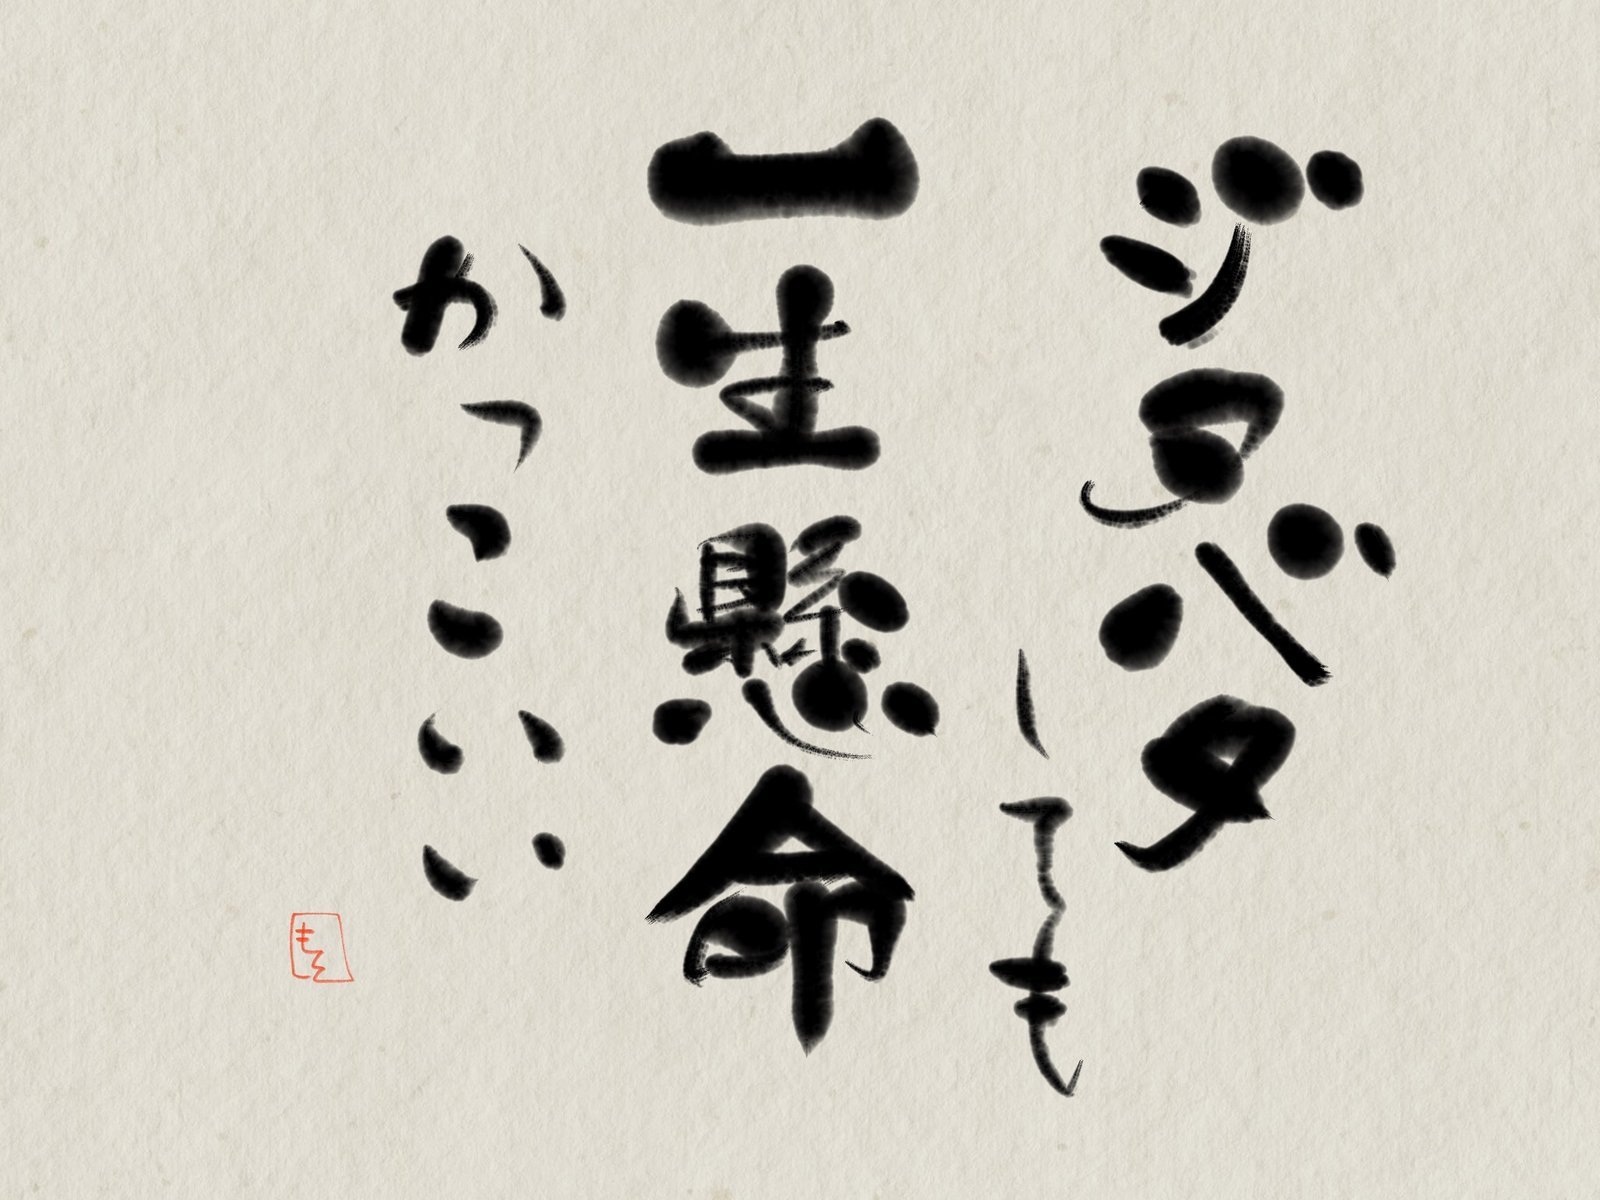 ジタバタ
しても
一生懸命
かっこいい